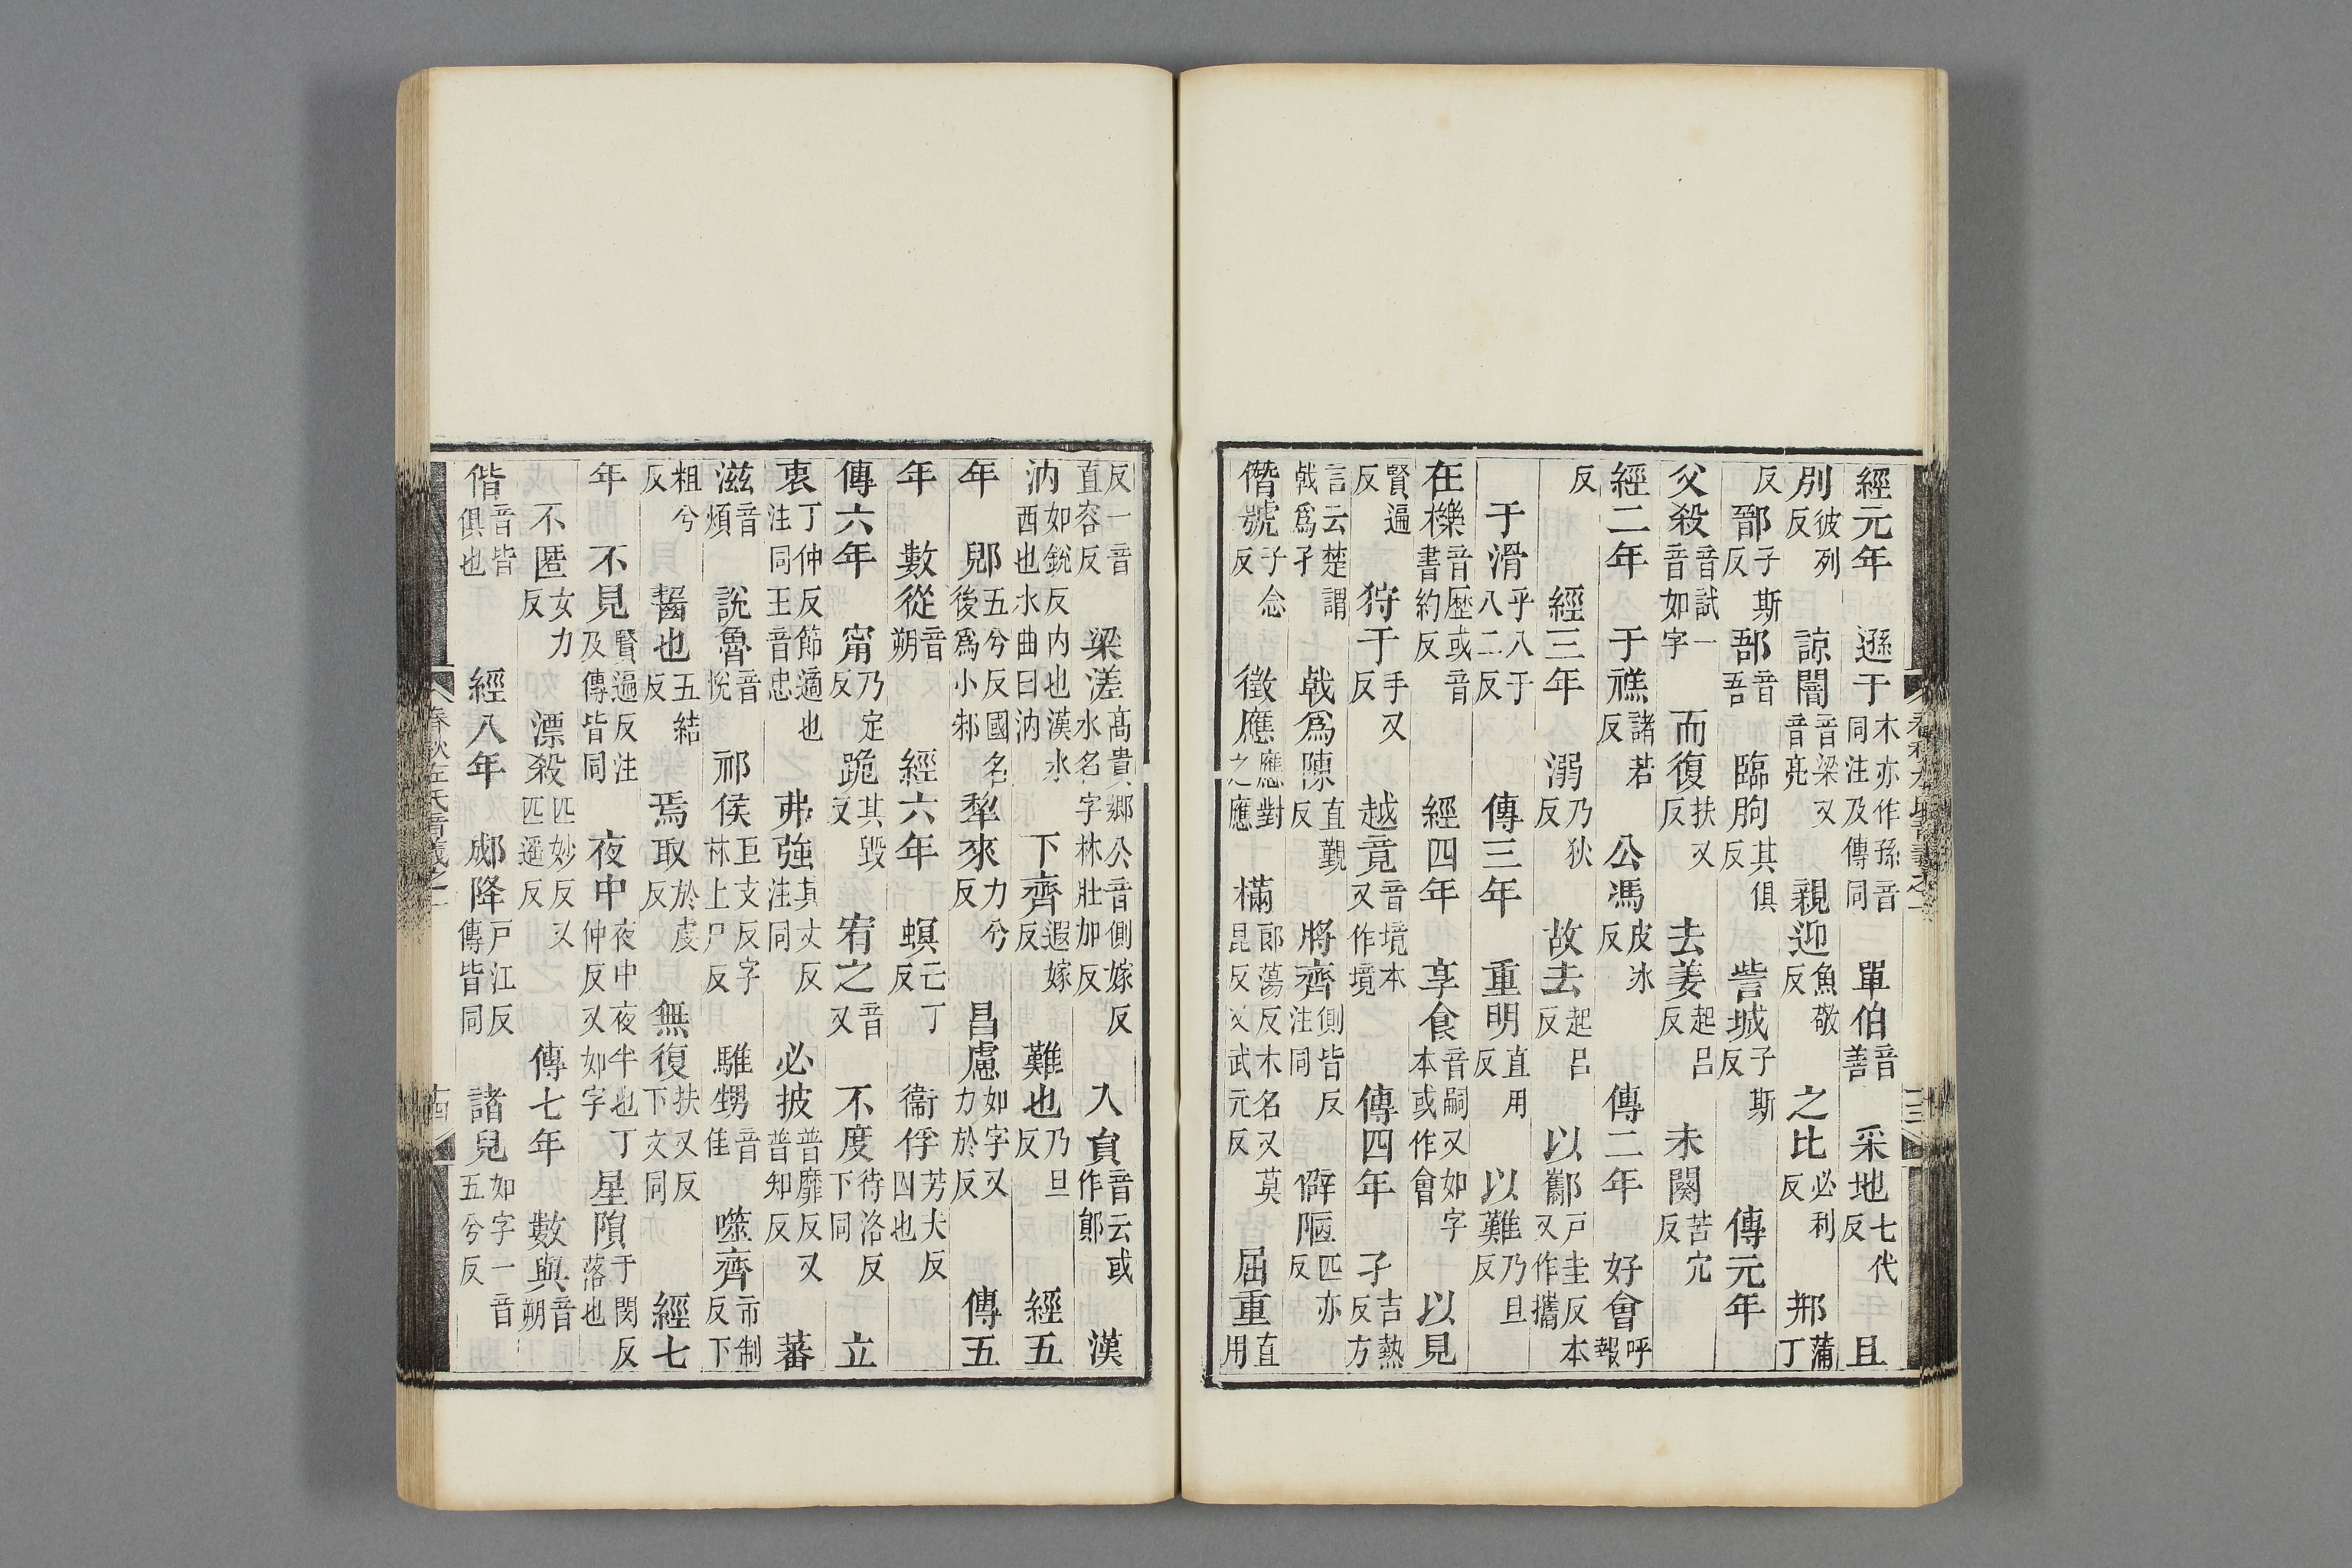 經元年　遜于本亦作孫音同注及傳同　單伯音善　采地七代反　且
別彼列反　諒闇音梁又音亮　親迎魚敬反　之比必利反　郱蒲丁
反　鄑子斯反　郚音吾　臨朐其俱反　訾城子斯反　傳元年
父殺音試一音如字　而復扶又反　去姜起呂反　未闋苦穴反
經二年　于禚諸若反　公馮皮冰反　傳二年　好會呼報
反　經三年　溺乃狄反　故去起呂反　以酅戶圭反本又作攜
于滑乎八反二于八反　傳三年　重明直用反　以難乃旦反
在櫟音歷或音書約反　經四年　享食音嗣又如字本或作會　以見
賢遍反　狩于手又反　越竟音境本又作境　傳四年　孑吉熱反方
言云楚謂戟爲孑　戟爲陳直覲反　將齊側皆反注同　僻陋匹亦反
僭號子念反　徵應應對之應　樠郎蕩反木名又莫昆反又武元反　屈重直用
反一音直容反　梁溠高貴鄉公音側嫁反水名字林壯加反　人負音云或作鄖　漢
汭如銳反內也漢水西也水曲曰汭　下齊遐嫁反　難也乃旦反　經五
年　郳五兮反國名後爲小邾　犂來力兮反　昌慮如字又力於反　傳五
年　數從音朔　經六年　螟亡丁反　衞俘芳夫反囚也
傳六年　甯乃定反　跪其毀又　宥之音又　不度待洛反下同　立
衷丁仲反節適也注同王音忠　弗強其丈反注同　必披普靡反又普知反　蕃
滋音煩　說魯音悅　祁侯巨支反字林上尸反　騅甥音佳　噬齊市制反下
粗兮反　齧也五結反　焉取於虔反　無復扶又反下文同　經七
年　不見賢遍反注及傳皆同　夜中夜中夜半也丁仲反又如字　星隕于閔反落也
不匿女力反　漂殺匹妙反又匹遙反　傳七年　數與音朔
偕音皆俱也　經八年　郕降戶江反傳皆同　諸兒如字一音五兮反
春秋左氏音義之一